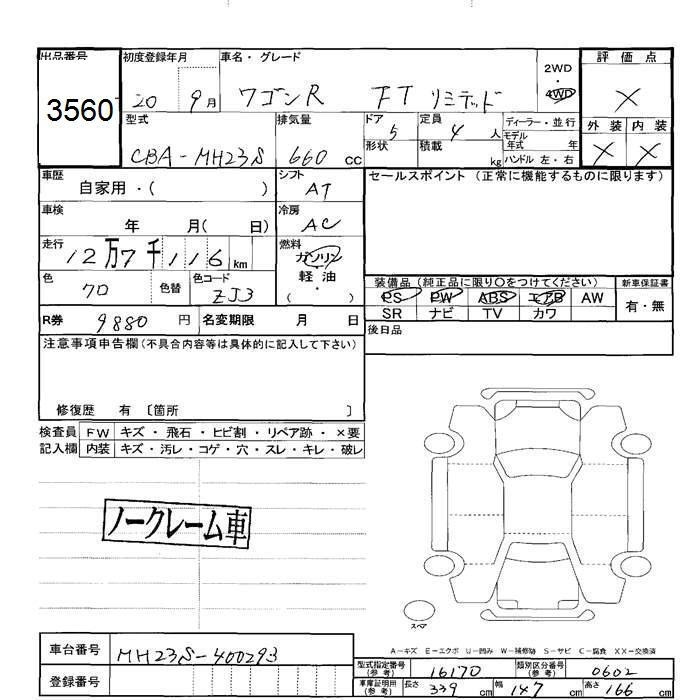 出品番号 初度登録年月 車名・グレード 2WD 評価点
3560 20 9月 ワゴンR FT リミテッド ・ 4WD ×
型式 排気量 ドア 5 定員 4 人 ディーラー・並行 外装 内装
CBA-MH23S 660 cc 形状 積載 kg モデル年式 年 × ×
ハンドル 左・右
車歴 自家用・( ) シフト AT セールスポイント (正常に機能するものに限ります)
車検 年 月( 日) 冷房 AC
走行 12万7千116 km 燃料 ガソリン
軽油
・
( )
色 クロ 色替 色コード ZJ3 装備品 (純正品に限り○をつけてください) 新車保証書
PS PW ABS エアB AW 有・無
SR ナビ TV カワ
R券 9880 円 名変期限 月 日 後日品
注意事項申告欄(不具合内容等は具体的に記入して下さい)
修復歴 有 〔箇所 〕
検査員 FW キズ・飛石・ヒビ割・リペア跡・×要
記入欄 内装 キズ・汚レ・コゲ・穴・スレ・キレ・破レ
ノークレーム車
スペア
A-キズ E-エクボ U-凹み W-補修跡 S-サビ C-腐食 XX-交換済
車台番号 MH23S-400293 型式指定番号(参考) 16170 類別区分番号(参考) 0602
登録番号 車庫証明用(参考) 長さ 339 cm 幅 147 cm 高さ 166 cm